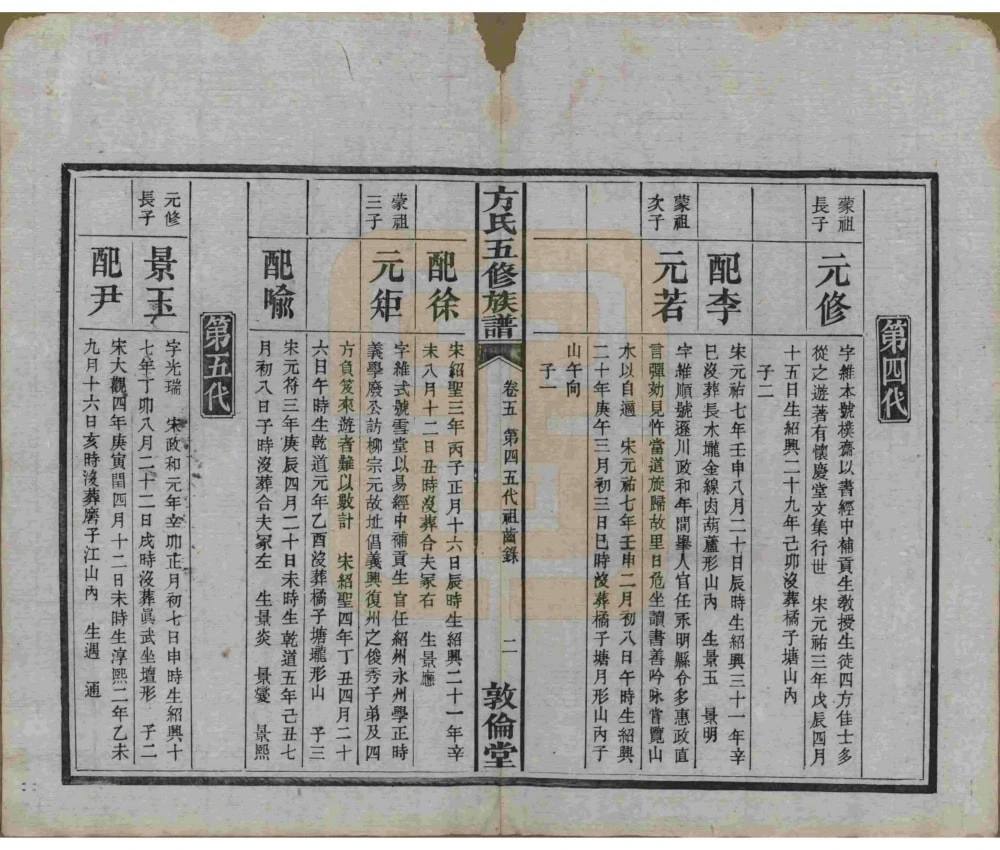 第四代
蒙祖
長子
元修
字維本號樸齋以書經中補貢生教授生徒四方佳士多
從之遊著有懷慶堂文集行世　宋元祐三年戊辰四月
十五日生紹興二十九年己卯沒葬橘子塘山內
子二
配李
宋元祐七年壬申八月二十日辰時生紹興三十一年辛
巳沒葬長木壠金線卤葫蘆形山內　生景玉　景明
蒙祖
次子
元若
字維順號遜川政和年間舉人官任永明縣令多惠政直
言彈劾見忤當道旋歸故里日危坐讀書善吟咏嘗覽山
水以自適　宋元祐七年壬申二月初八日午時生紹興
二十年庚午三月初三日巳時沒葬橘子塘月形山丙子
山午向
子一
方氏五修族譜
卷五　第四五代祖齒錄
二
敦倫堂
配徐
宋紹聖三年丙子正月十六日辰時生紹興二十一年辛
未八月十二日丑時沒葬合夫冢右　生景應
蒙祖
三子
元矩
字維式號雪堂以易經中補貢生　官任紹州永州學正時
義學廢公訪柳宗元故址倡義興復州之俊秀子弟及四
方負笈來遊者難以數計　宋紹聖四年丁丑四月二十
六日午時生乾道元年乙酉沒葬橘子塘壠形山　子三
配喩
宋元符三年庚辰四月二十日未時生乾道五年己丑七
月初八日子時沒葬合夫冢左　生景炎　景燮　景熙
第五代
元修
長子
景玉
字光瑞　宋政和元年辛卯正月初七日申時生紹興十
七年丁卯八月二十二日戌時沒葬眞武坐壇形　子二
配尹
宋大觀四年庚寅閏四月十二日未時生淳熙二年乙未
九月十六日亥時沒葬磨子江山內　生週　通